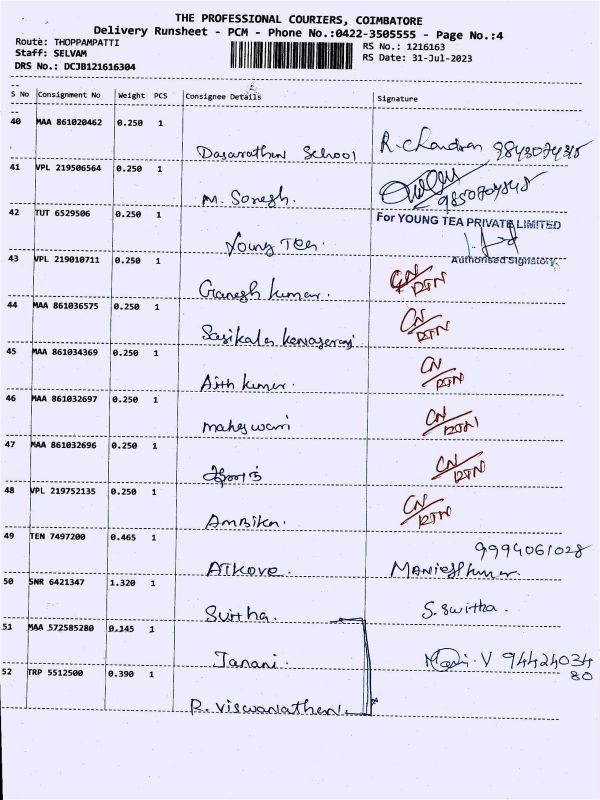 THE PROFESSIONAL COURIERS, COIMBATORE
Delivery Runsheet - PCM - Phone No.:0422-3505555 - Page No.:4
Route: THOPPAMPATTI
RS No.: 1216163
Staff: SELVAM
RS Date: 31-Jul-2023
DRS No.: DCJB121616304
S No Consignment No Weight PCS Consignee Details Signature
40 MAA 861020462 0.250 1
Dasarathan School R. Chandran
41 VPL 219506564 0.250 1
M. Sonesh.
42 TUT 6529506 0.250 1 For YOUNG TEA PRIVATE LIMITED
Young Tea.
Authorised Signatory.
43 VPL 219010711 0.250 1
Ganesh kumar. CN/RTN
44 MAA 861036575 0.250 1
Sasikala CN/RTN
45 MAA 861034369 0.250 1
Ajith kumar. CN/RTN
46 MAA 861032697 0.250 1
maheswari CN/RTN
47 MAA 861032696 0.250 1
CN/RTN
48 VPL 219752135 0.250 1
Ambika. CN/RTN
49 TEN 7497200 0.465 1 9994061028
ATKOVE. Manieshkumar.
50 SNR 6421347 1.320 1
Switha. S. switha.
51 MAA 572585280 0.145 1
Janani. Mani. V 94424034
80
52 TRP 5512500 0.390 1
R. Viswanathan.